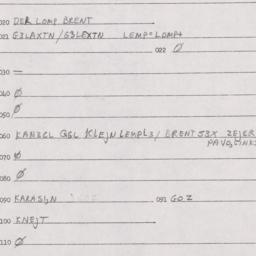 020 DER LOMP BRENT
021 G3LAXTN/G3LEXTN LEMP=LOMP+
022 Ø
030 —
040 Ø
050 Ø
060 KAN3CL QSL KLEJN LEMPL3/ BRENT J3X ZEJER
PAVO
070 Ø
080 Ø
090 KARASIJN 091 GOZ
100 KNEJT
110 Ø